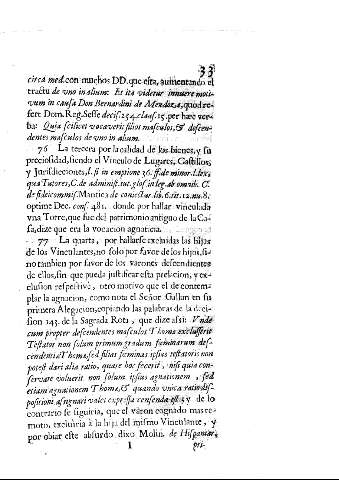 33
circa med. con muchos DD. que esta, aumentando el
tractu de uno in alium: Et ita videtur innuere moti-
vum in causa Don Bernardini de Mendoza, quod re-
fert Dom. Reg. Sesse decis. 254. claus. 15. per hæc ver-
ba: Quia scilicet vocaverit filios masculos, & descen-
dentes masculos de uno in alium.
76 La tercera por la calidad de los bienes, y su
preciosidad, siendo el Vinculo de Lugares, Castillos,
y Jurisdicciones, l. si in emptione 36. ff. de minor. l. lex,
qua Tutores, C. de administ. tut. glos. in leg. ab omnib. C.
de fideicommis. Mantica de coniectur. lib. 6. tit. 12. nu. 8.
optime Dec. cons. 481. donde por hallar vinculada
vna Torre, que fue del patrimonio antiguo de la Ca-
sa, dize que era la vocacion agnaticia.
77 La quarta, por hallarse excluidas las hijas
de los Vinculantes, no solo por favor de los hijos, si-
no tambien por favor de los varones descendientes
de ellos, sin que pueda justificar esta prelacion, y ex-
clusion respective, otro motivo que el de contem-
plar la agnacion, como nota el Señor Gallan en su
primera Alegacion, copiando las palabras de la deci-
sion 143. de la Sagrada Rota, que dize assi: Unde
cum propter descendentes masculos Thomæ excluserit
Testator non solum primum gradum feminarum des-
cendentis à Thoma, sed filias feminas ipsius testatoris non
potest dari alia ratio, quare hoc fecerit, nisi quia con-
servare voluerit non solum ipsius agnationem, sed
etiam agnationem Thomæ, & quando unica ratio dis-
positioni assignari valet expressa censenda est; y de lo
contrario se siguiria, que el varon cognado mas re-
moto, excluiria à la hija del mismo Vinculante, y
por obiar este absurdo dixo Molin. de Hispaniar.
I
pri-